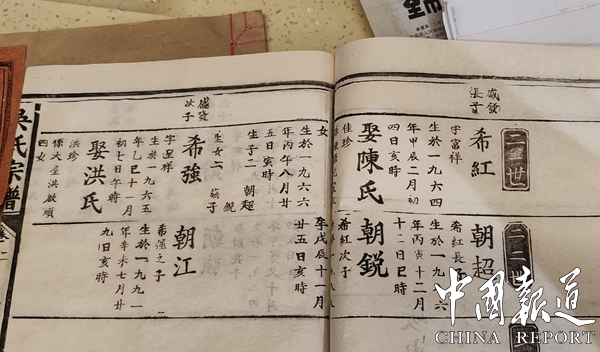 二一世
盛發
長子
希紅
字富祥
生於一九六四
年甲辰二月初
四日亥時
娶陳氏
佳珍
女
生於一九六六
年丙午八月廿
五日寅時
生子二 朝超
銳
生女二 燕子
盛發
次子
希強
字呈祥
生於一九六五
年乙巳十一月
初七日午時
娶洪氏
洪珍
係大屋洪啟順
四女
二二世
朝超
希紅長
生於一九
年丙寅十二月
十二日巳時
朝銳
希紅次子
年戊辰十一月
廿五日亥時
朝江
希強之子
生於一九九一
年辛未七月廿
九日亥時
吳氏宗譜
中國報道
CHINA REPORT